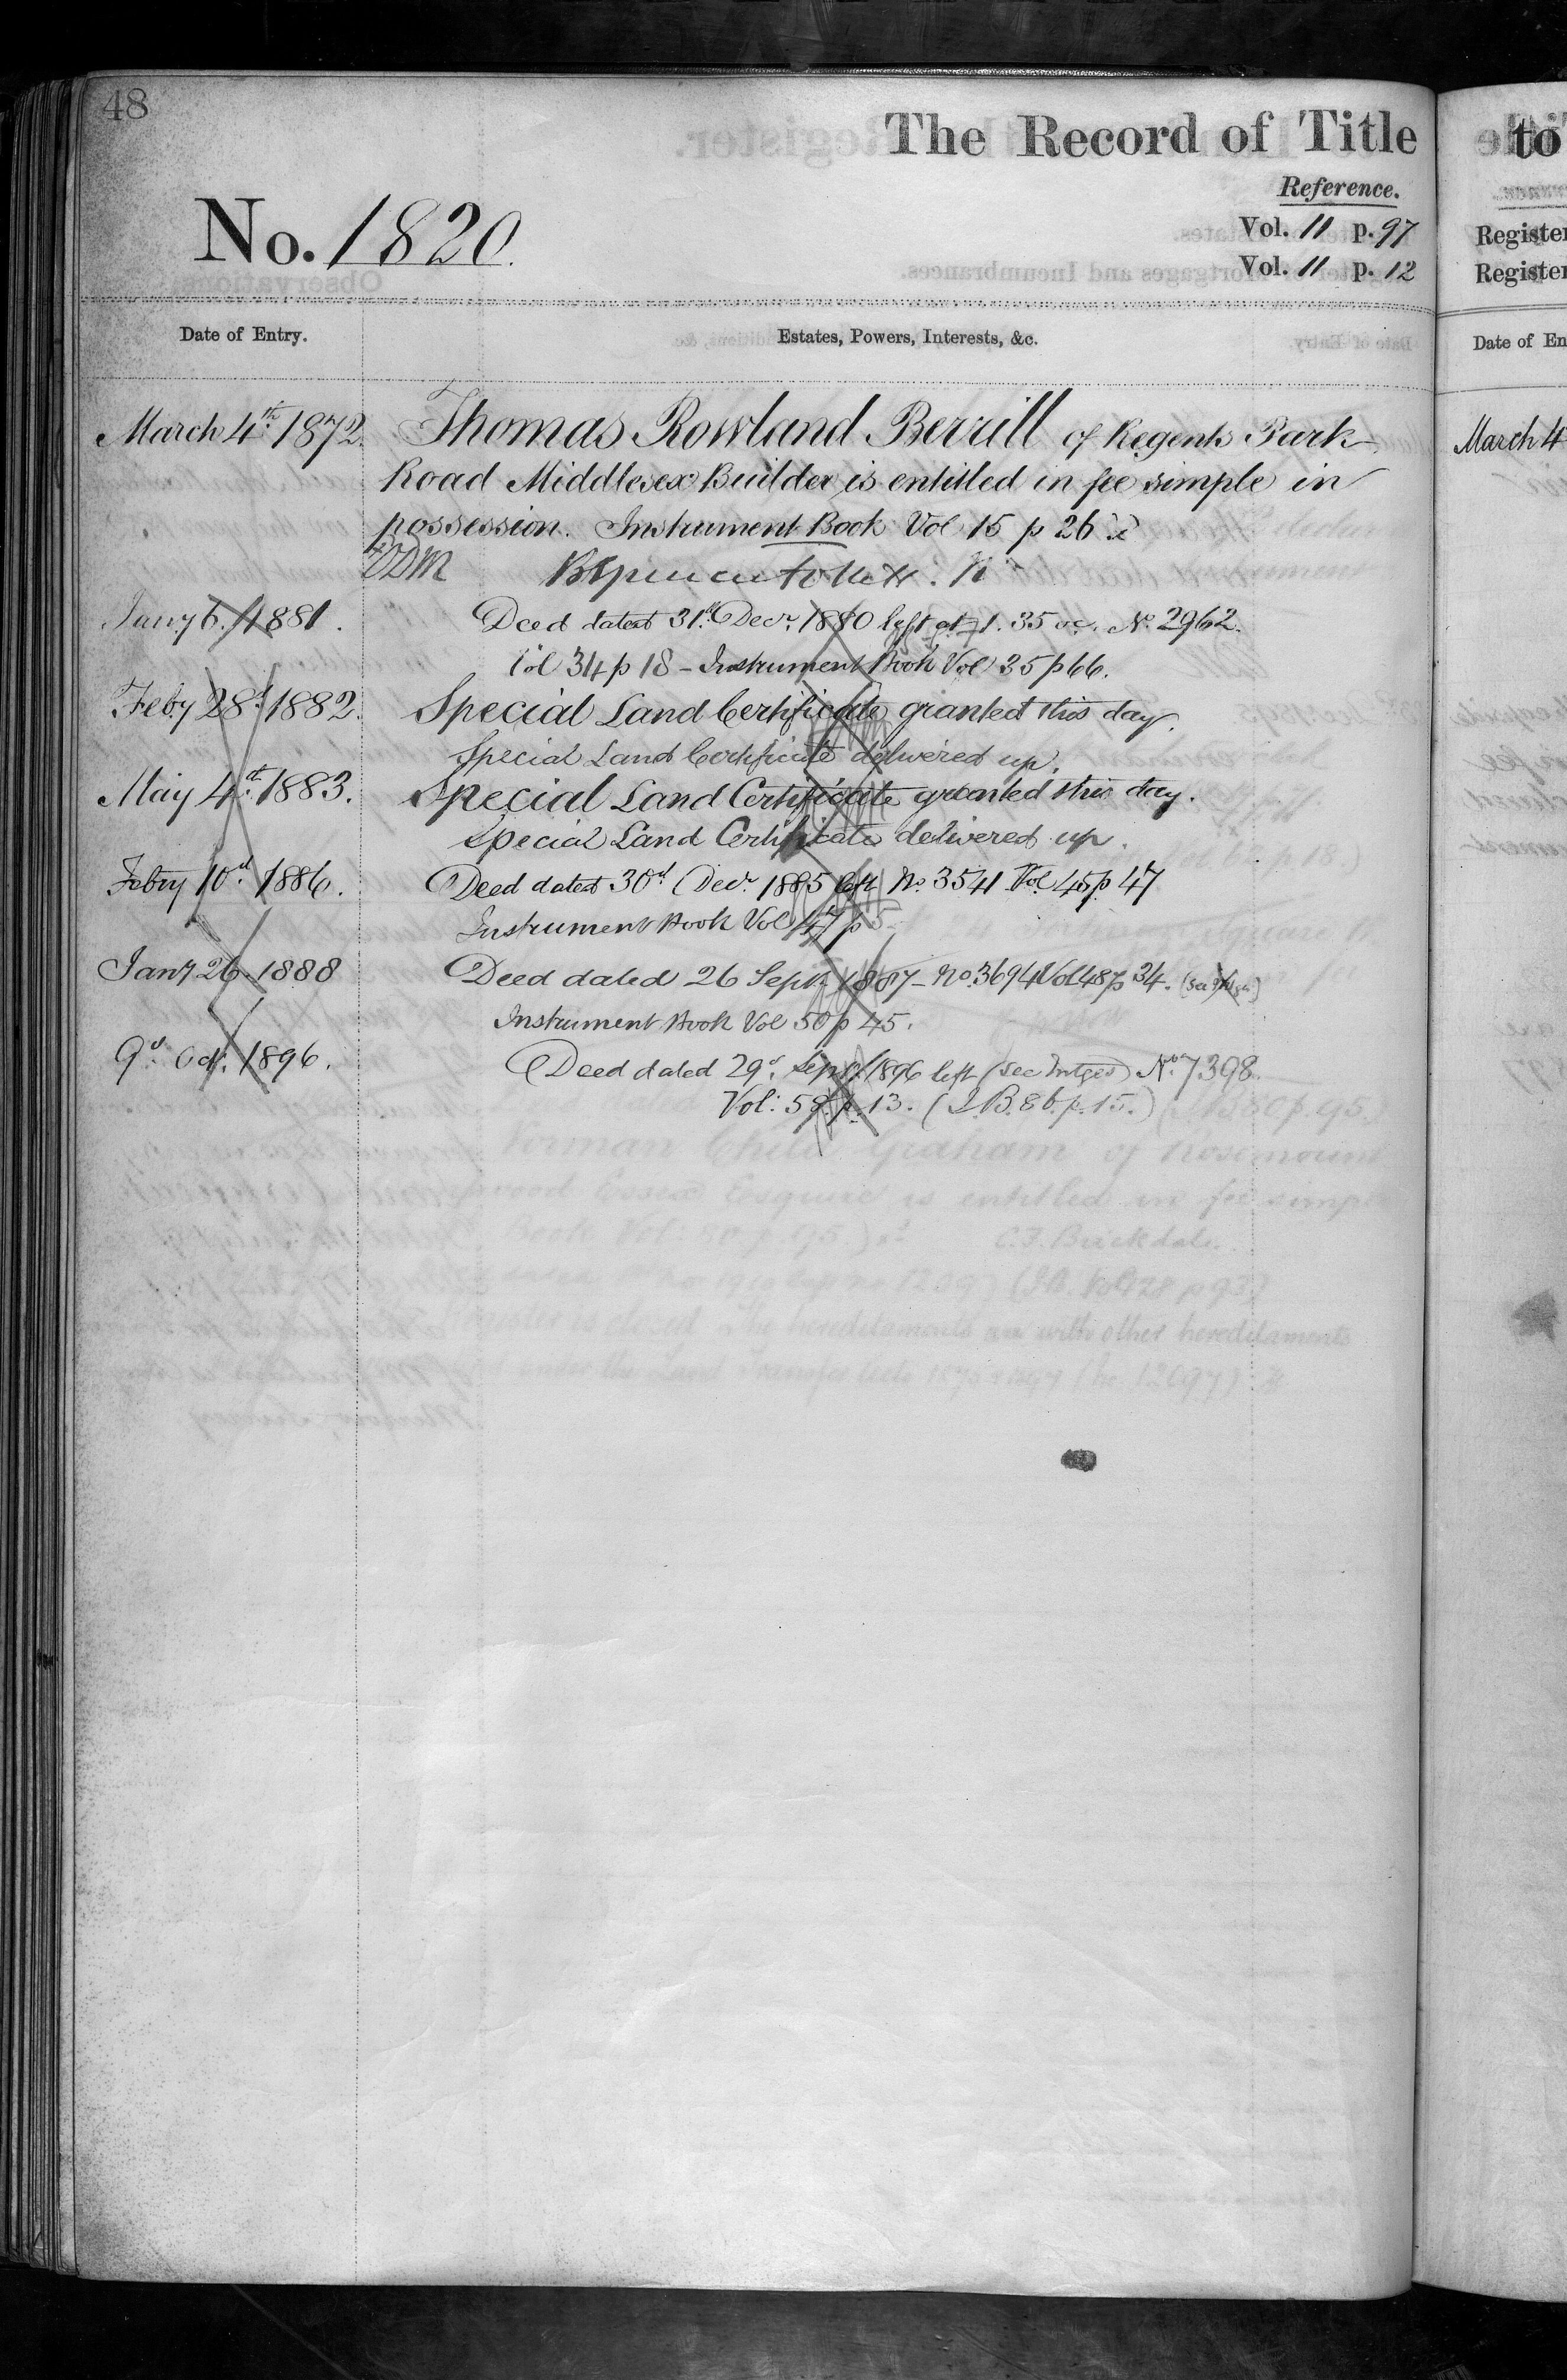 48
The Record of Title
Reference.
No. 1820.
Vol. 11 p. 97
Vol. 11 p. 12
Date of Entry.
Estates, Powers, Interests, &c.
March 4th 1872 Thomas Rowland Berrill of Regents Park
Road Middlesex Builder is entitled in fee simple in
possession. Instrument Book Vol 15 p 26
Jany 6. 1881. Deed dated 31st Decr. 1880 left at 1.35 No. 2962.
Vol 34 p 18 – Instrument Book Vol 35 p 66.
Feby 28th 1882. Special Land Certificate granted this day.
Special Land Certificate delivered up.
May 4th 1883. Special Land Certificate granted this day.
Special Land Certificate delivered up.
Febry 10th 1886. Deed dated 30th Decr. 1885 left No. 3541 Vol. 45 p. 47
Instrument Book Vol 47 p 5.
Jany 26. 1888 Deed dated 26 Sept. 1887 – No. 3694 Vol 48 p 34.
Instrument Book Vol 50 p 45.
9th Oct. 1896. Deed dated 29th Sept. 1896 left (see Mtges) No. 7398.
Vol: 59. p. 13. (I.B. 86. p. 15.)
to
Register
Register
Date of En
March 4